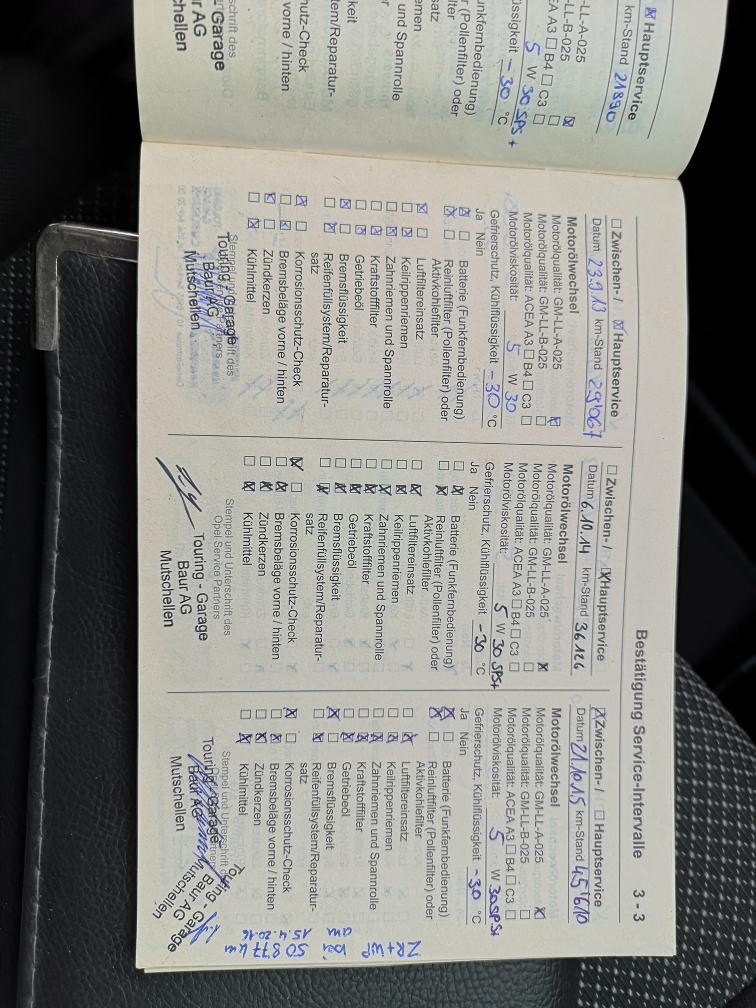 Bestätigung Service-Intervalle 3 - 3
☒ Hauptservice
km-Stand 21890
LL-A-025 ☒
LL-B-025 ☐
EA A3 ☐ B4 ☐ C3 ☐
5 W 30 SPS+
üssigkeit -30 °C
nkfernbedienung)
r (Pollenfilter) oder
lter
satz
emen
und Spannrolle
r
keit
tem/Reparatur-
utz-Check
vorne / hinten
schrift des
Garage
r AG
schellen
☐ Zwischen- / ☒ Hauptservice
Datum 23.9.13 km-Stand 29'067
Motorölwechsel
Motorölqualität: GM-LL-A-025 ☒
Motorölqualität: GM-LL-B-025 ☐
Motorölqualität: ACEA A3 ☐ B4 ☐ C3 ☐
Motorölviskosität: 5 W 30
Gefrierschutz, Kühlflüssigkeit -30 °C
Ja Nein
☒ ☐ Batterie (Funkfernbedienung)
☒ ☐ Reinluftfilter (Pollenfilter) oder
Aktivkohlefilter
☒ ☐ Luftfiltereinsatz
☐ ☒ Keilrippenriemen
☐ ☒ Zahnriemen und Spannrolle
☐ ☒ Kraftstofffilter
☐ ☒ Getriebeöl
☒ ☐ Bremsflüssigkeit
☐ ☒ Reifenfüllsystem/Reparatur-
satz
☒ ☐ Korrosionsschutz-Check
☐ ☒ Bremsbeläge vorne / hinten
☒ ☐ Zündkerzen
☐ ☒ Kühlmittel
Touring - Garage
Baur AG
Mutschellen
☐ Zwischen- / ☒ Hauptservice
Datum 6.10.14 km-Stand 36126
Motorölwechsel
Motorölqualität: GM-LL-A-025 ☒
Motorölqualität: GM-LL-B-025 ☐
Motorölqualität: ACEA A3 ☐ B4 ☐ C3 ☐
Motorölviskosität: 5 W 30 SPS+
Gefrierschutz, Kühlflüssigkeit -30 °C
Ja Nein
☐ ☒ Batterie (Funkfernbedienung)
☐ ☒ Reinluftfilter (Pollenfilter) oder
Aktivkohlefilter
☐ ☒ Luftfiltereinsatz
☐ ☒ Keilrippenriemen
☐ ☒ Zahnriemen und Spannrolle
☐ ☒ Kraftstofffilter
☐ ☒ Getriebeöl
☐ ☒ Bremsflüssigkeit
☐ ☒ Reifenfüllsystem/Reparatur-
satz
☒ ☐ Korrosionsschutz-Check
☐ ☒ Bremsbeläge vorne / hinten
☐ ☒ Zündkerzen
☐ ☒ Kühlmittel
Stempel und Unterschrift des
Opel Service Partners
Touring - Garage
Baur AG
Mutschellen
☒ Zwischen- / ☐ Hauptservice
Datum 21.10.15 km-Stand 45'610
Motorölwechsel
Motorölqualität: GM-LL-A-025 ☒
Motorölqualität: GM-LL-B-025 ☐
Motorölqualität: ACEA A3 ☐ B4 ☐ C3 ☐
Motorölviskosität: 5 W 30 SPS+
Gefrierschutz, Kühlflüssigkeit -30 °C
Ja Nein
☒ ☐ Batterie (Funkfernbedienung)
☒ ☐ Reinluftfilter (Pollenfilter) oder
Aktivkohlefilter
☐ ☒ Luftfiltereinsatz
☐ ☒ Keilrippenriemen
☐ ☒ Zahnriemen und Spannrolle
☐ ☒ Kraftstofffilter
☐ ☒ Getriebeöl
☒ ☐ Bremsflüssigkeit
☐ ☒ Reifenfüllsystem/Reparatur-
satz
☒ ☐ Korrosionsschutz-Check
☐ ☒ Bremsbeläge vorne / hinten
☐ ☒ Zündkerzen
☐ ☒ Kühlmittel
Stempel und Unterschrift
Touring - Garage
Baur AG
Mutschellen
Touring - Garage
Baur AG
Mutschellen
ZR+WP bei 50877 km
am 15.4.2016